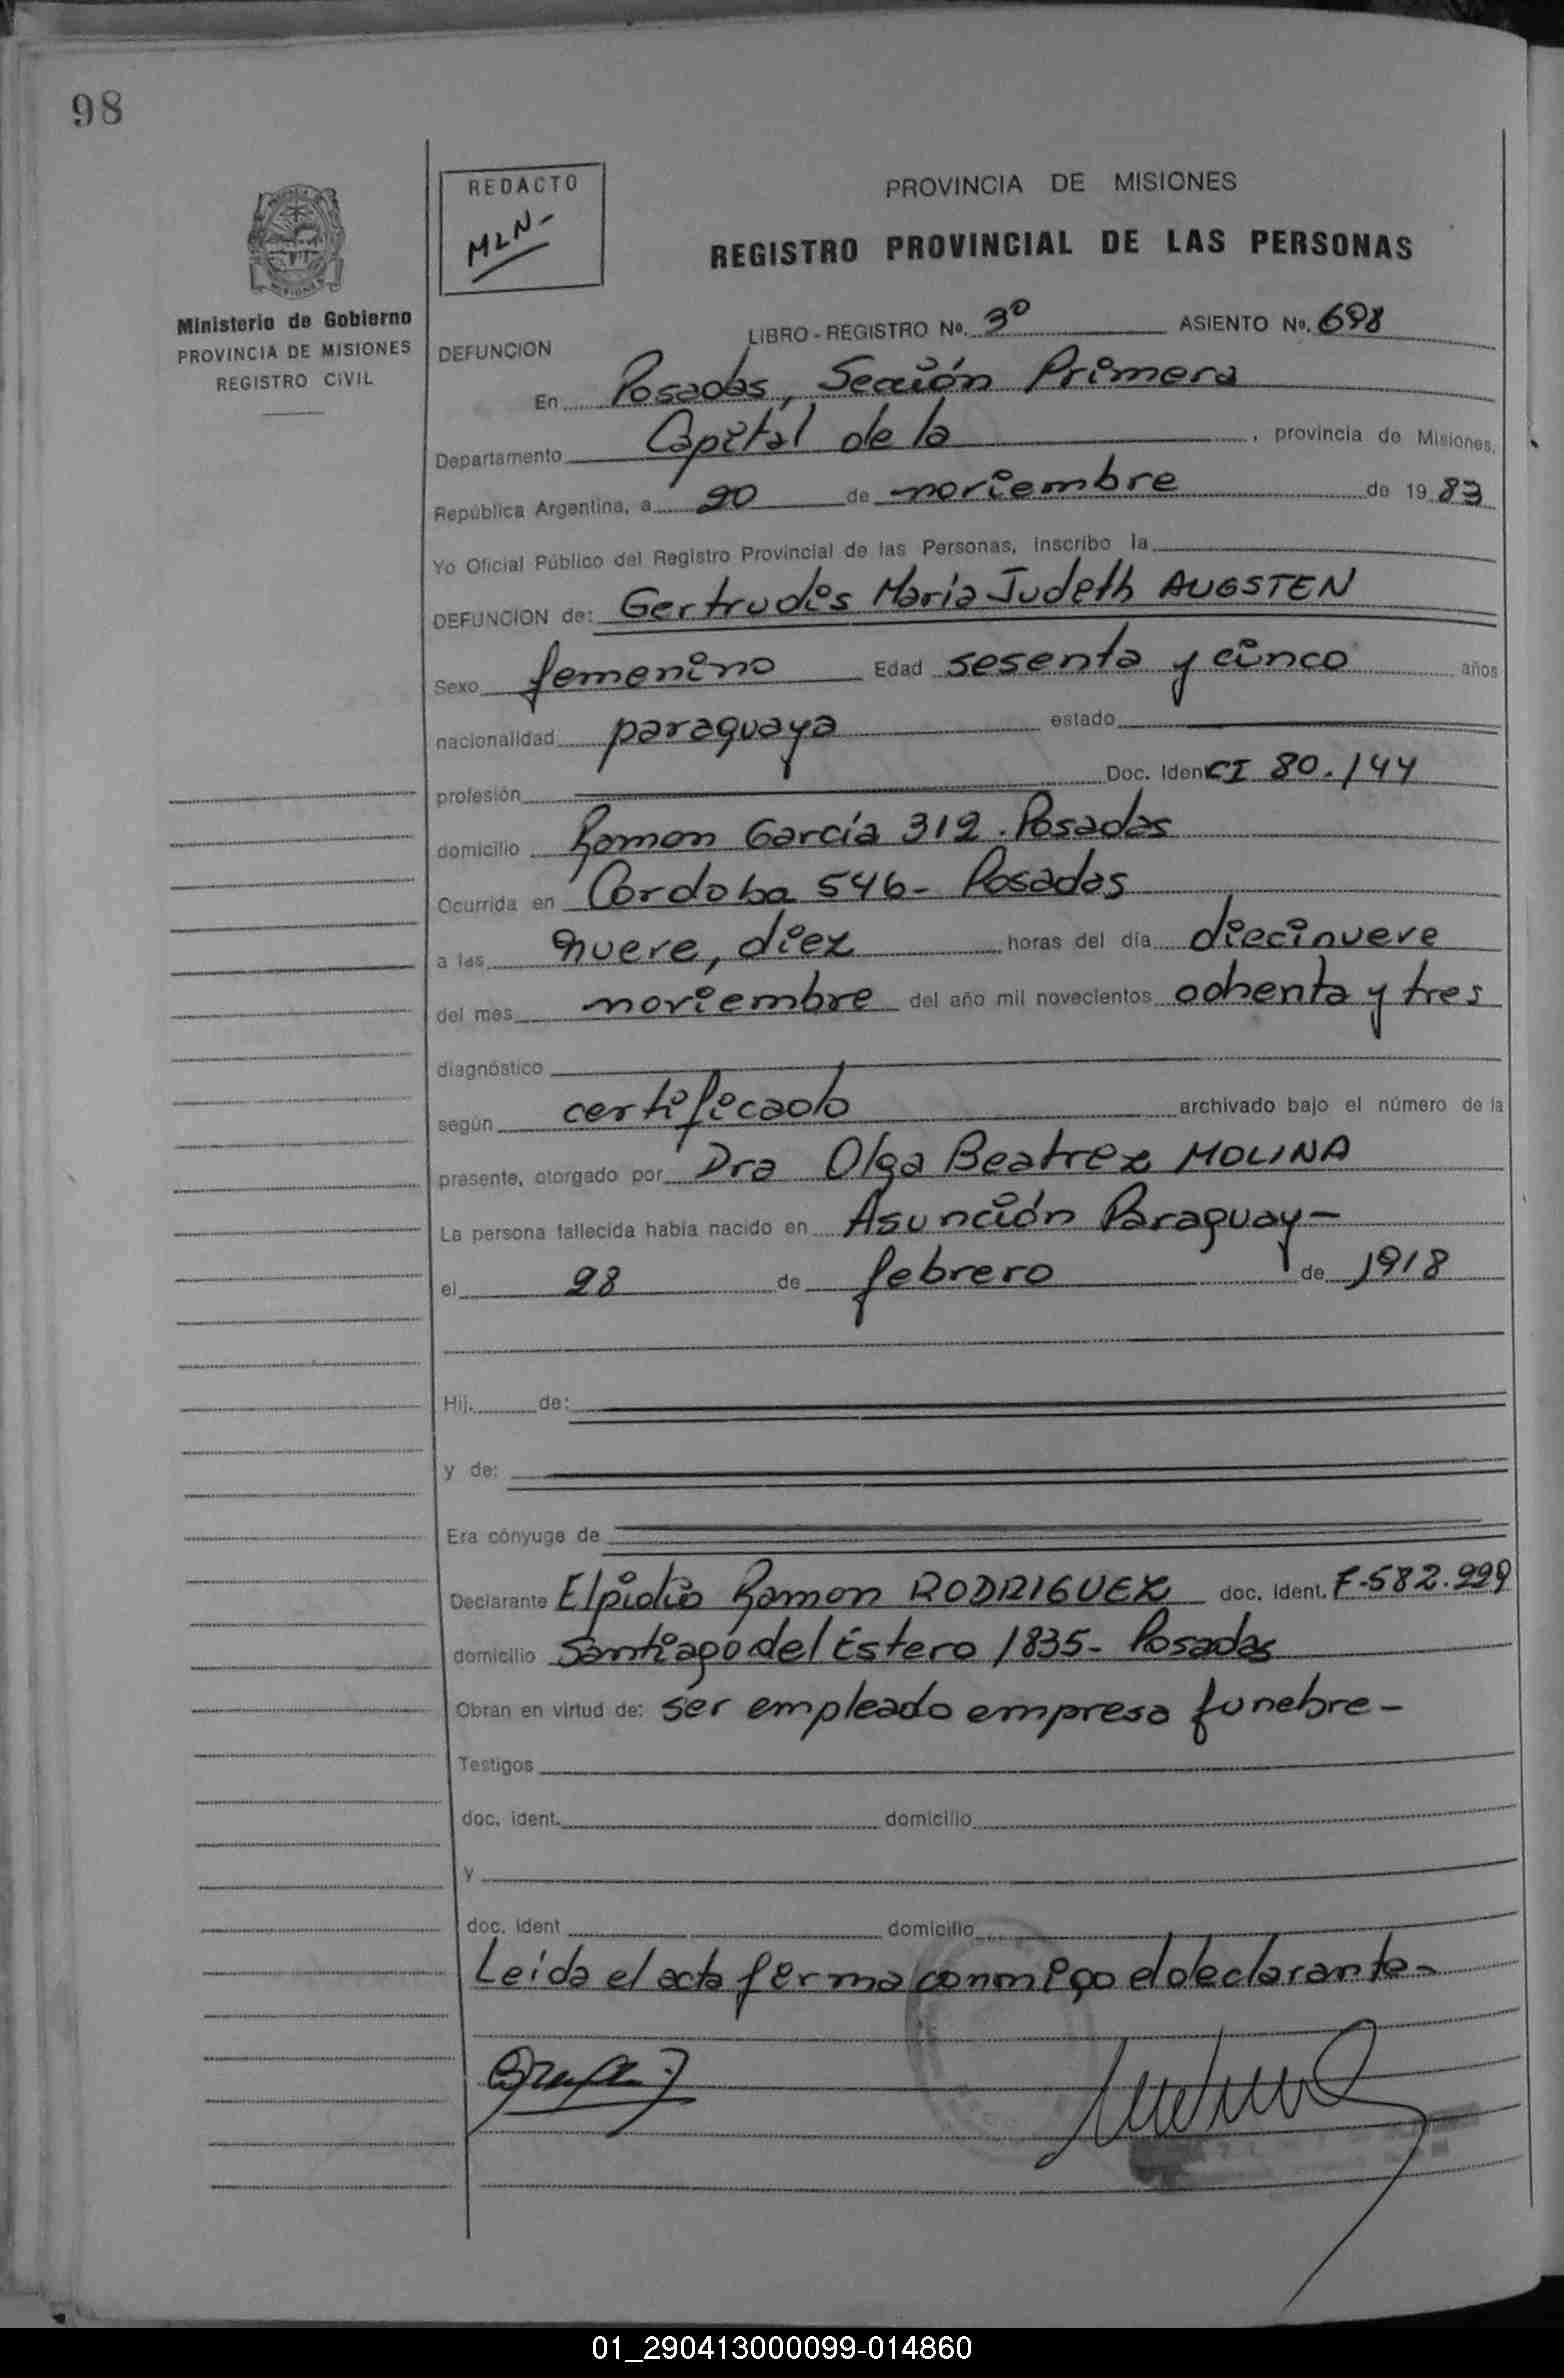 98
REDACTO
MLN-
PROVINCIA DE MISIONES
REGISTRO PROVINCIAL DE LAS PERSONAS
Ministerio de Gobierno
PROVINCIA DE MISIONES
REGISTRO CIVIL
LIBRO - REGISTRO No. 3º ASIENTO No. 698
DEFUNCION
En Posadas, Sección Primera
Departamento Capital de la , provincia de Misiones,
República Argentina, a 20 de noviembre de 1983
Yo Oficial Público del Registro Provincial de las Personas, inscribo la
DEFUNCION de: Gertrudis Maria Judeth AUGSTEN
Sexo femenino Edad sesenta y cinco años
nacionalidad paraguaya estado
profesión Doc. Iden CI 80.144
domicilio Ramon García 312. Posadas
Ocurrida en Cordoba 546- Posadas
a las nueve, diez horas del día diecinueve
del mes noviembre del año mil novecientos ochenta y tres
diagnóstico
según certificado archivado bajo el número de la
presente, otorgado por Dra Olga Beatriz MOLINA
La persona fallecida había nacido en Asunción Paraguay-
el 28 de febrero de 1918
Hij. de:
y de:
Era cónyuge de
Declarante Elpidio Ramon RODRIGUEZ doc. ident. 7.582.229
domicilio Santiago del Estero 1835- Posadas
Obran en virtud de: ser empleado empresa funebre-
Testigos
doc. ident. domicilio
y
doc. ident domicilio
Leída el acta firma conmigo el declarante-
01_290413000099-014860